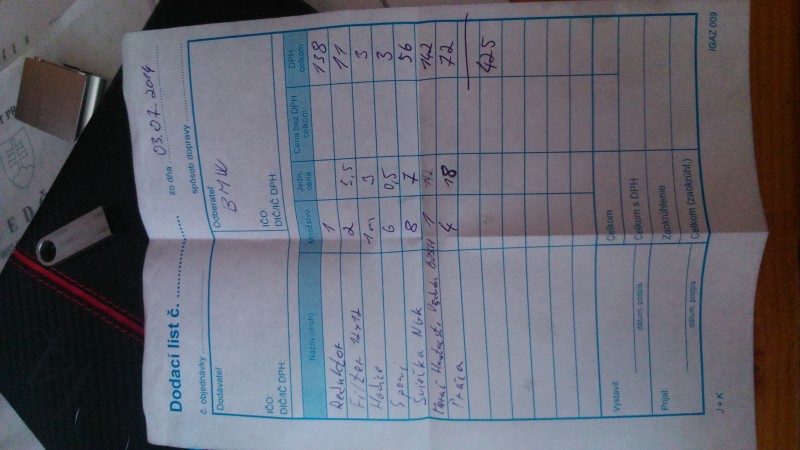 Dodací list č.
č. objednávky
zo dňa 03.07.2014
spôsob dopravy
Dodávateľ
Odberateľ
BMW
IČO:
DIČ/IČ DPH:
IČO:
DIČ/IČ DPH:
Názov (druh) Množstvo Jedn. cena Cena bez DPH celkom DPH celkom
Reduktor 1 138
Filter 12x12 2 5,5 11
Hadice 1m 3 3
Spony 6 0,5 3
Sviečka NGK 8 7 56
1 142 142
Práca 4 18 72
425
Vystavil
dátum, podpis
Prijal
dátum, podpis
Celkom
Celkom s DPH
Zaokrúhlenie
Celkom (zaokrúhl.)
J + K
IGAZ 009